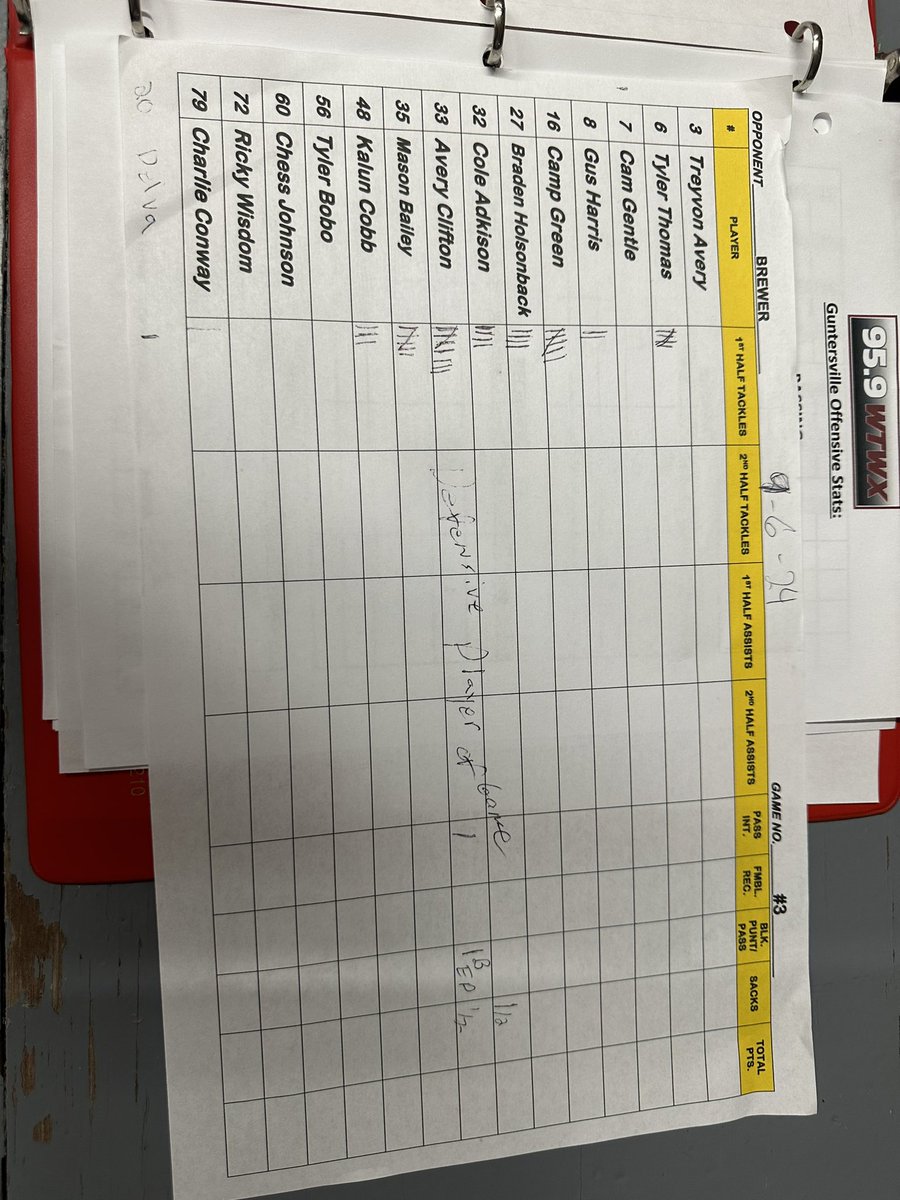 95.9 WTWX
Guntersville Offensive Stats:
OPPONENT BREWER 9-6-24 GAME NO. #3
# PLAYER 1ST HALF TACKLES 2ND HALF TACKLES 1ST HALF ASSISTS 2ND HALF ASSISTS PASS INT. FMBL. REC. BLK. PUNT/ PASS SACKS TOTAL PTS.
3 Treyvon Avery
6 Tyler Thomas
7 Cam Gentle
8 Gus Harris
16 Camp Green
27 Braden Holsonback 1/2
32 Cole Adkison
33 Avery Clifton Defensive Player of Game 1 1B EP 1/2
35 Mason Bailey
48 Kalun Cobb
56 Tyler Bobo
60 Chess Johnson
72 Ricky Wisdom
79 Charlie Conway
20